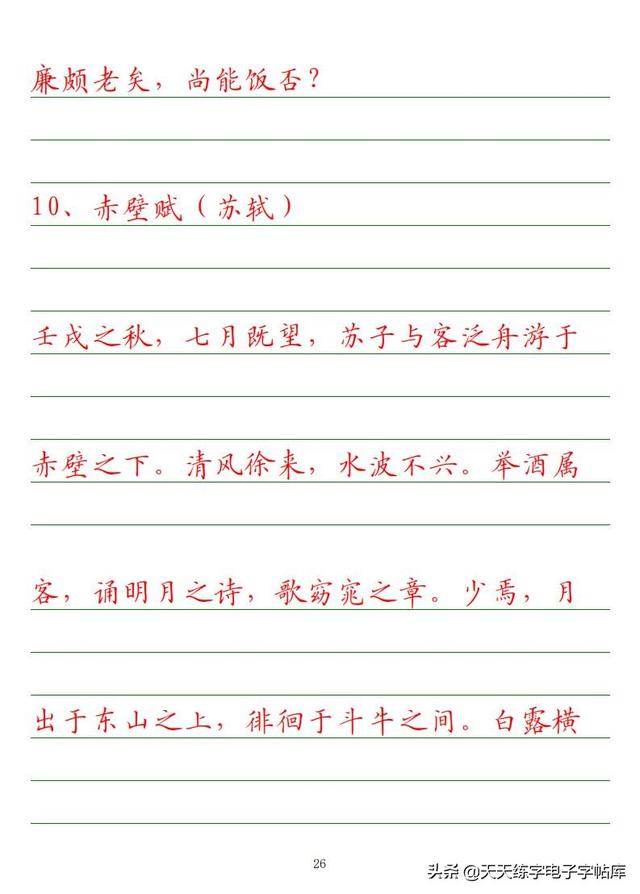 廉颇老矣，尚能饭否？
10、赤壁赋（苏轼）
壬戌之秋，七月既望，苏子与客泛舟游于
赤壁之下。清风徐来，水波不兴。举酒属
客，诵明月之诗，歌窈窕之章。少焉，月
出于东山之上，徘徊于斗牛之间。白露横
26
头条 @天天练字电子字帖库